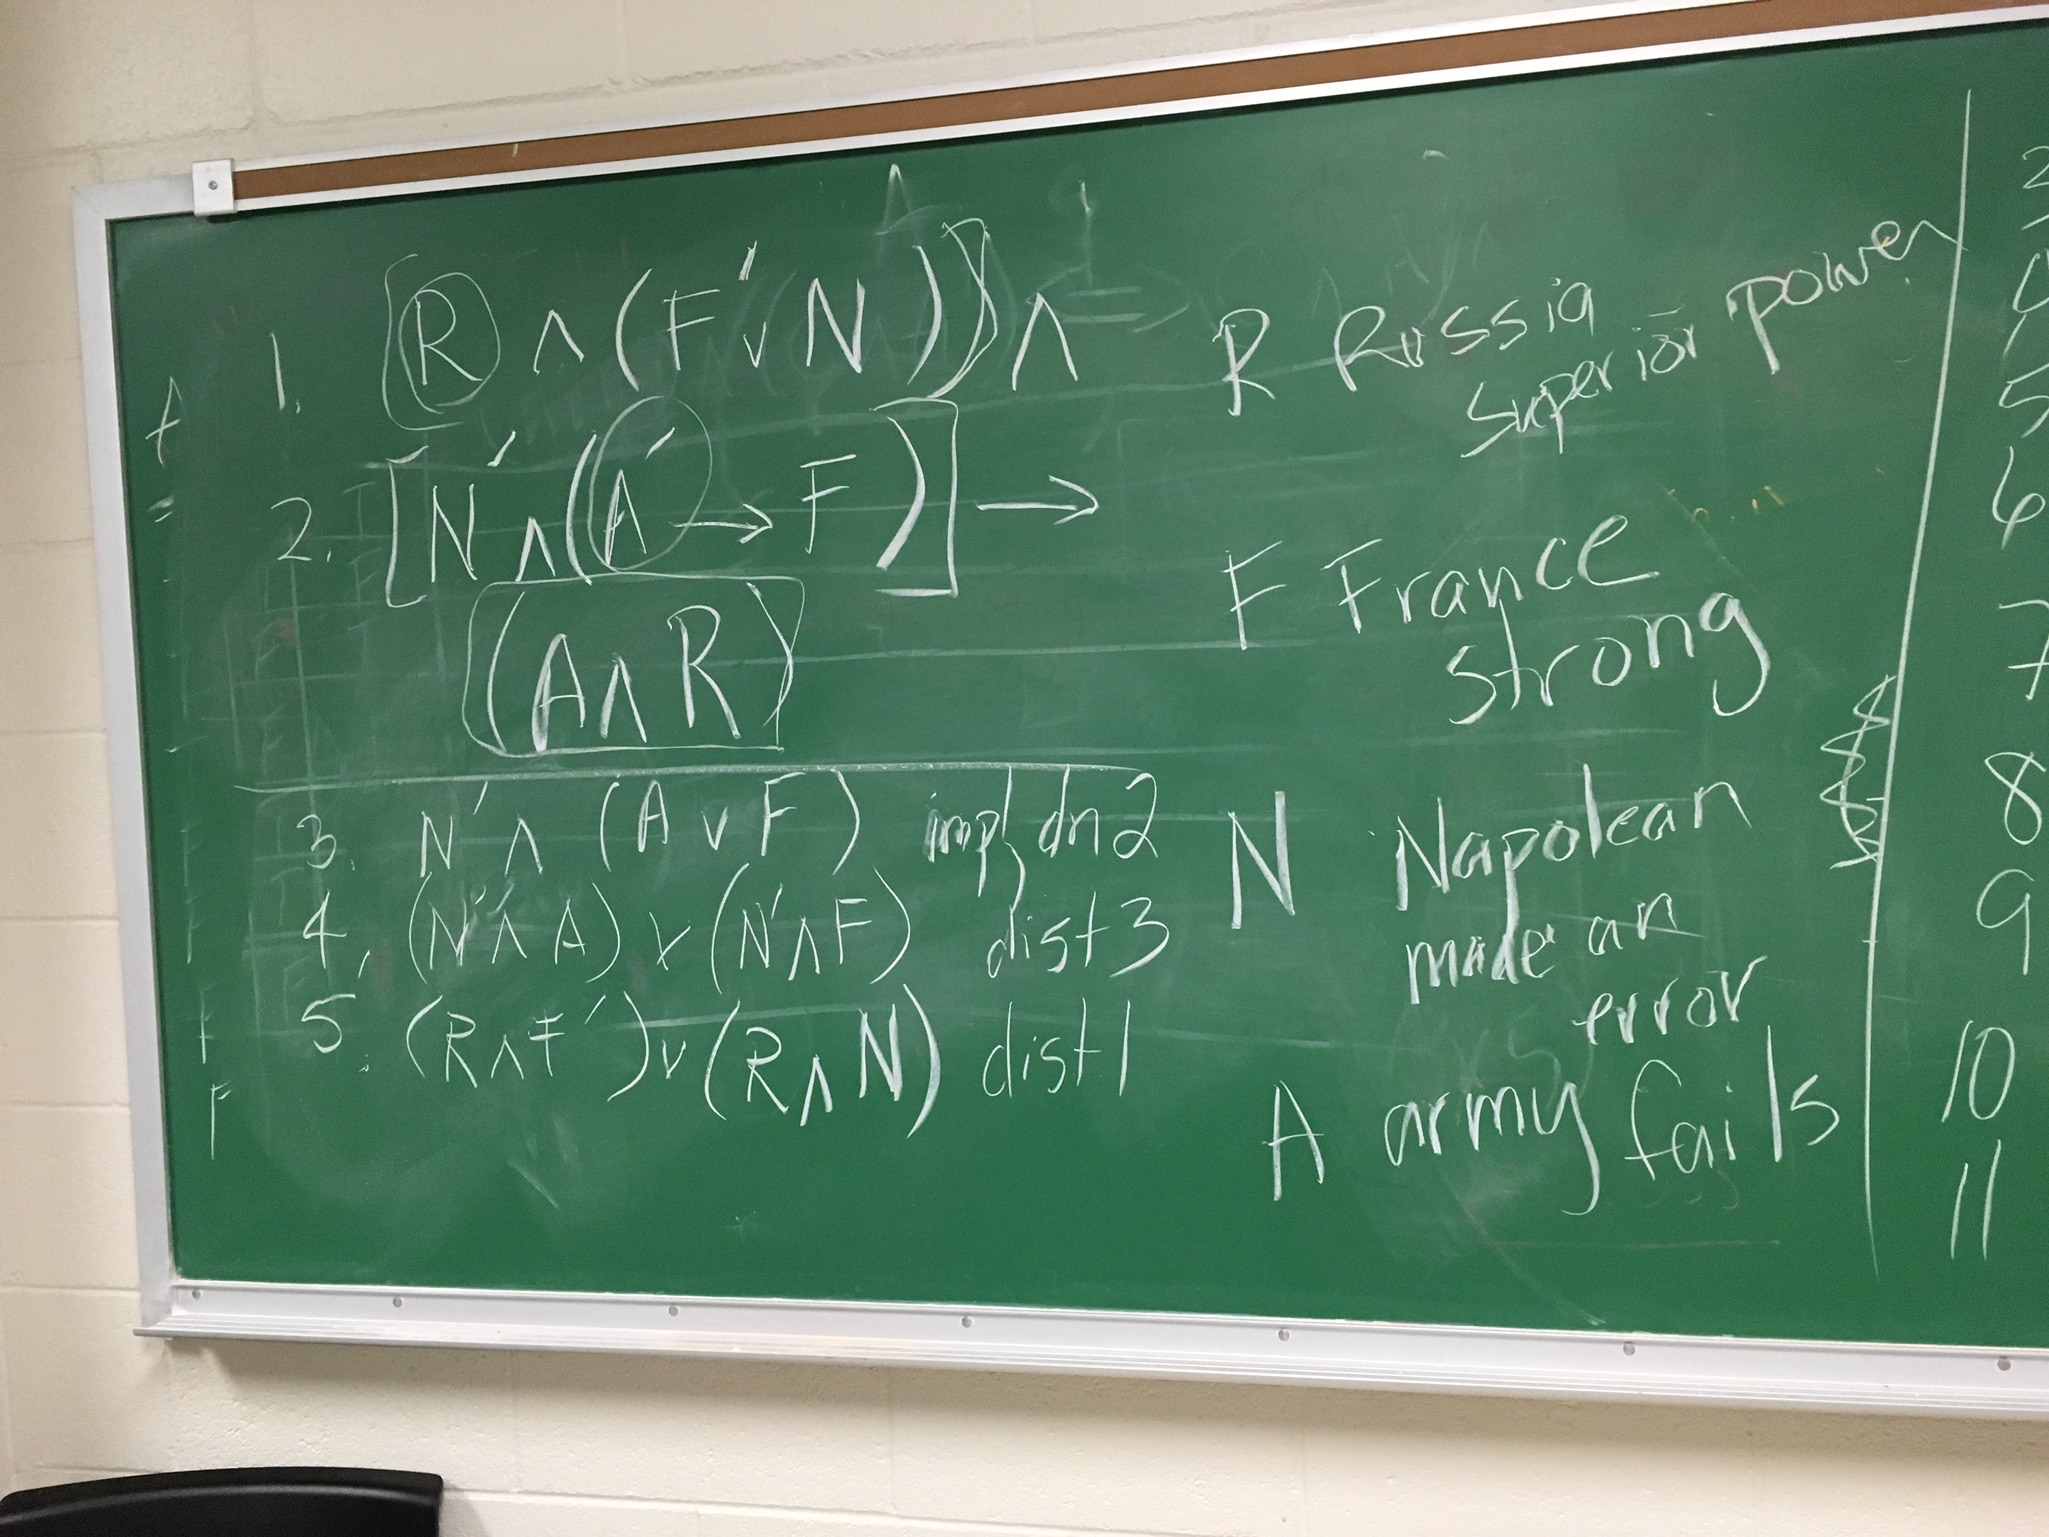 1. [R ∧ (F′ ∨ N)] ∧
2. [N′ ∧ (A′ → F)] →
(A ∧ R)
3. N′ ∧ (A ∨ F) imp, dn 2
4. (N′ ∧ A) ∨ (N′ ∧ F) dist 3
5. (R ∧ F′) ∨ (R ∧ N) dist 1
R Russia
superior power
F France
strong
N Napolean
made an
error
A army fails
2
3
4
5
6
7
8
9
10
11